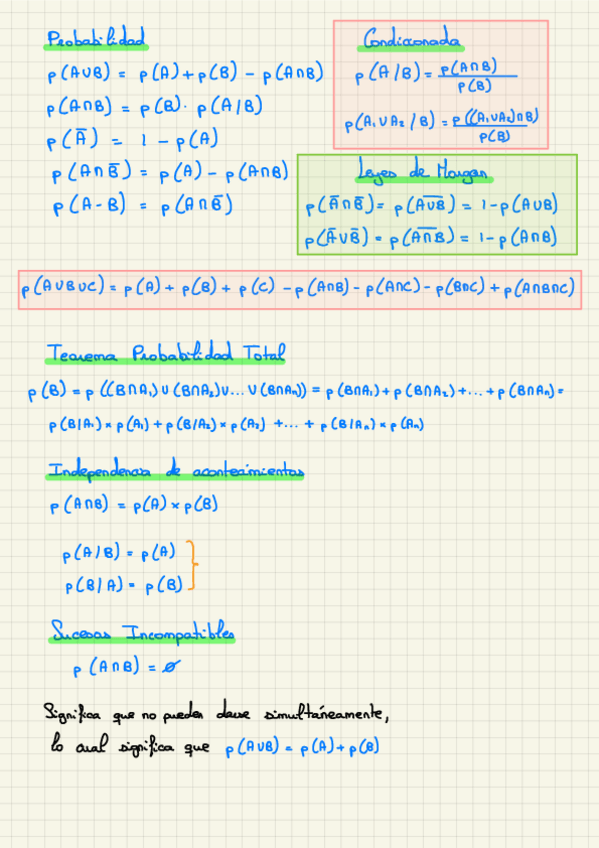 Probabilidad
p(A∪B) = p(A) + p(B) - p(A∩B)
p(A∩B) = p(B) · p(A/B)
p(Ā) = 1 - p(A)
p(A∩B̄) = p(A) - p(A∩B)
p(A-B) = p(A∩B̄)
Condicionada
p(A/B) = p(A∩B) / p(B)
p(A₁∪A₂/B) = p((A₁∪A₂)∩B) / p(B)
Leyes de Morgan
p(Ā∩B̄) = p(A̅∪̅B̅) = 1-p(A∪B)
p(Ā∪B̄) = p(A̅∩̅B̅) = 1-p(A∩B)
p(A∪B∪C) = p(A) + p(B) + p(C) - p(A∩B) - p(A∩C) - p(B∩C) + p(A∩B∩C)
Teorema Probabilidad Total
p(B) = p((B∩A₁)∪(B∩A₂)∪...∪(B∩Aₙ)) = p(B∩A₁) + p(B∩A₂) + ... + p(B∩Aₙ) =
p(B/A₁) × p(A₁) + p(B/A₂) × p(A₂) + ... + p(B/Aₙ) × p(Aₙ)
Independencia de acontecimientos
p(A∩B) = p(A) × p(B)
p(A/B) = p(A)
p(B/A) = p(B)
Sucesos Incompatibles
p(A∩B) = ∅
Significa que no pueden darse simultáneamente,
lo cual significa que p(A∪B) = p(A) + p(B)